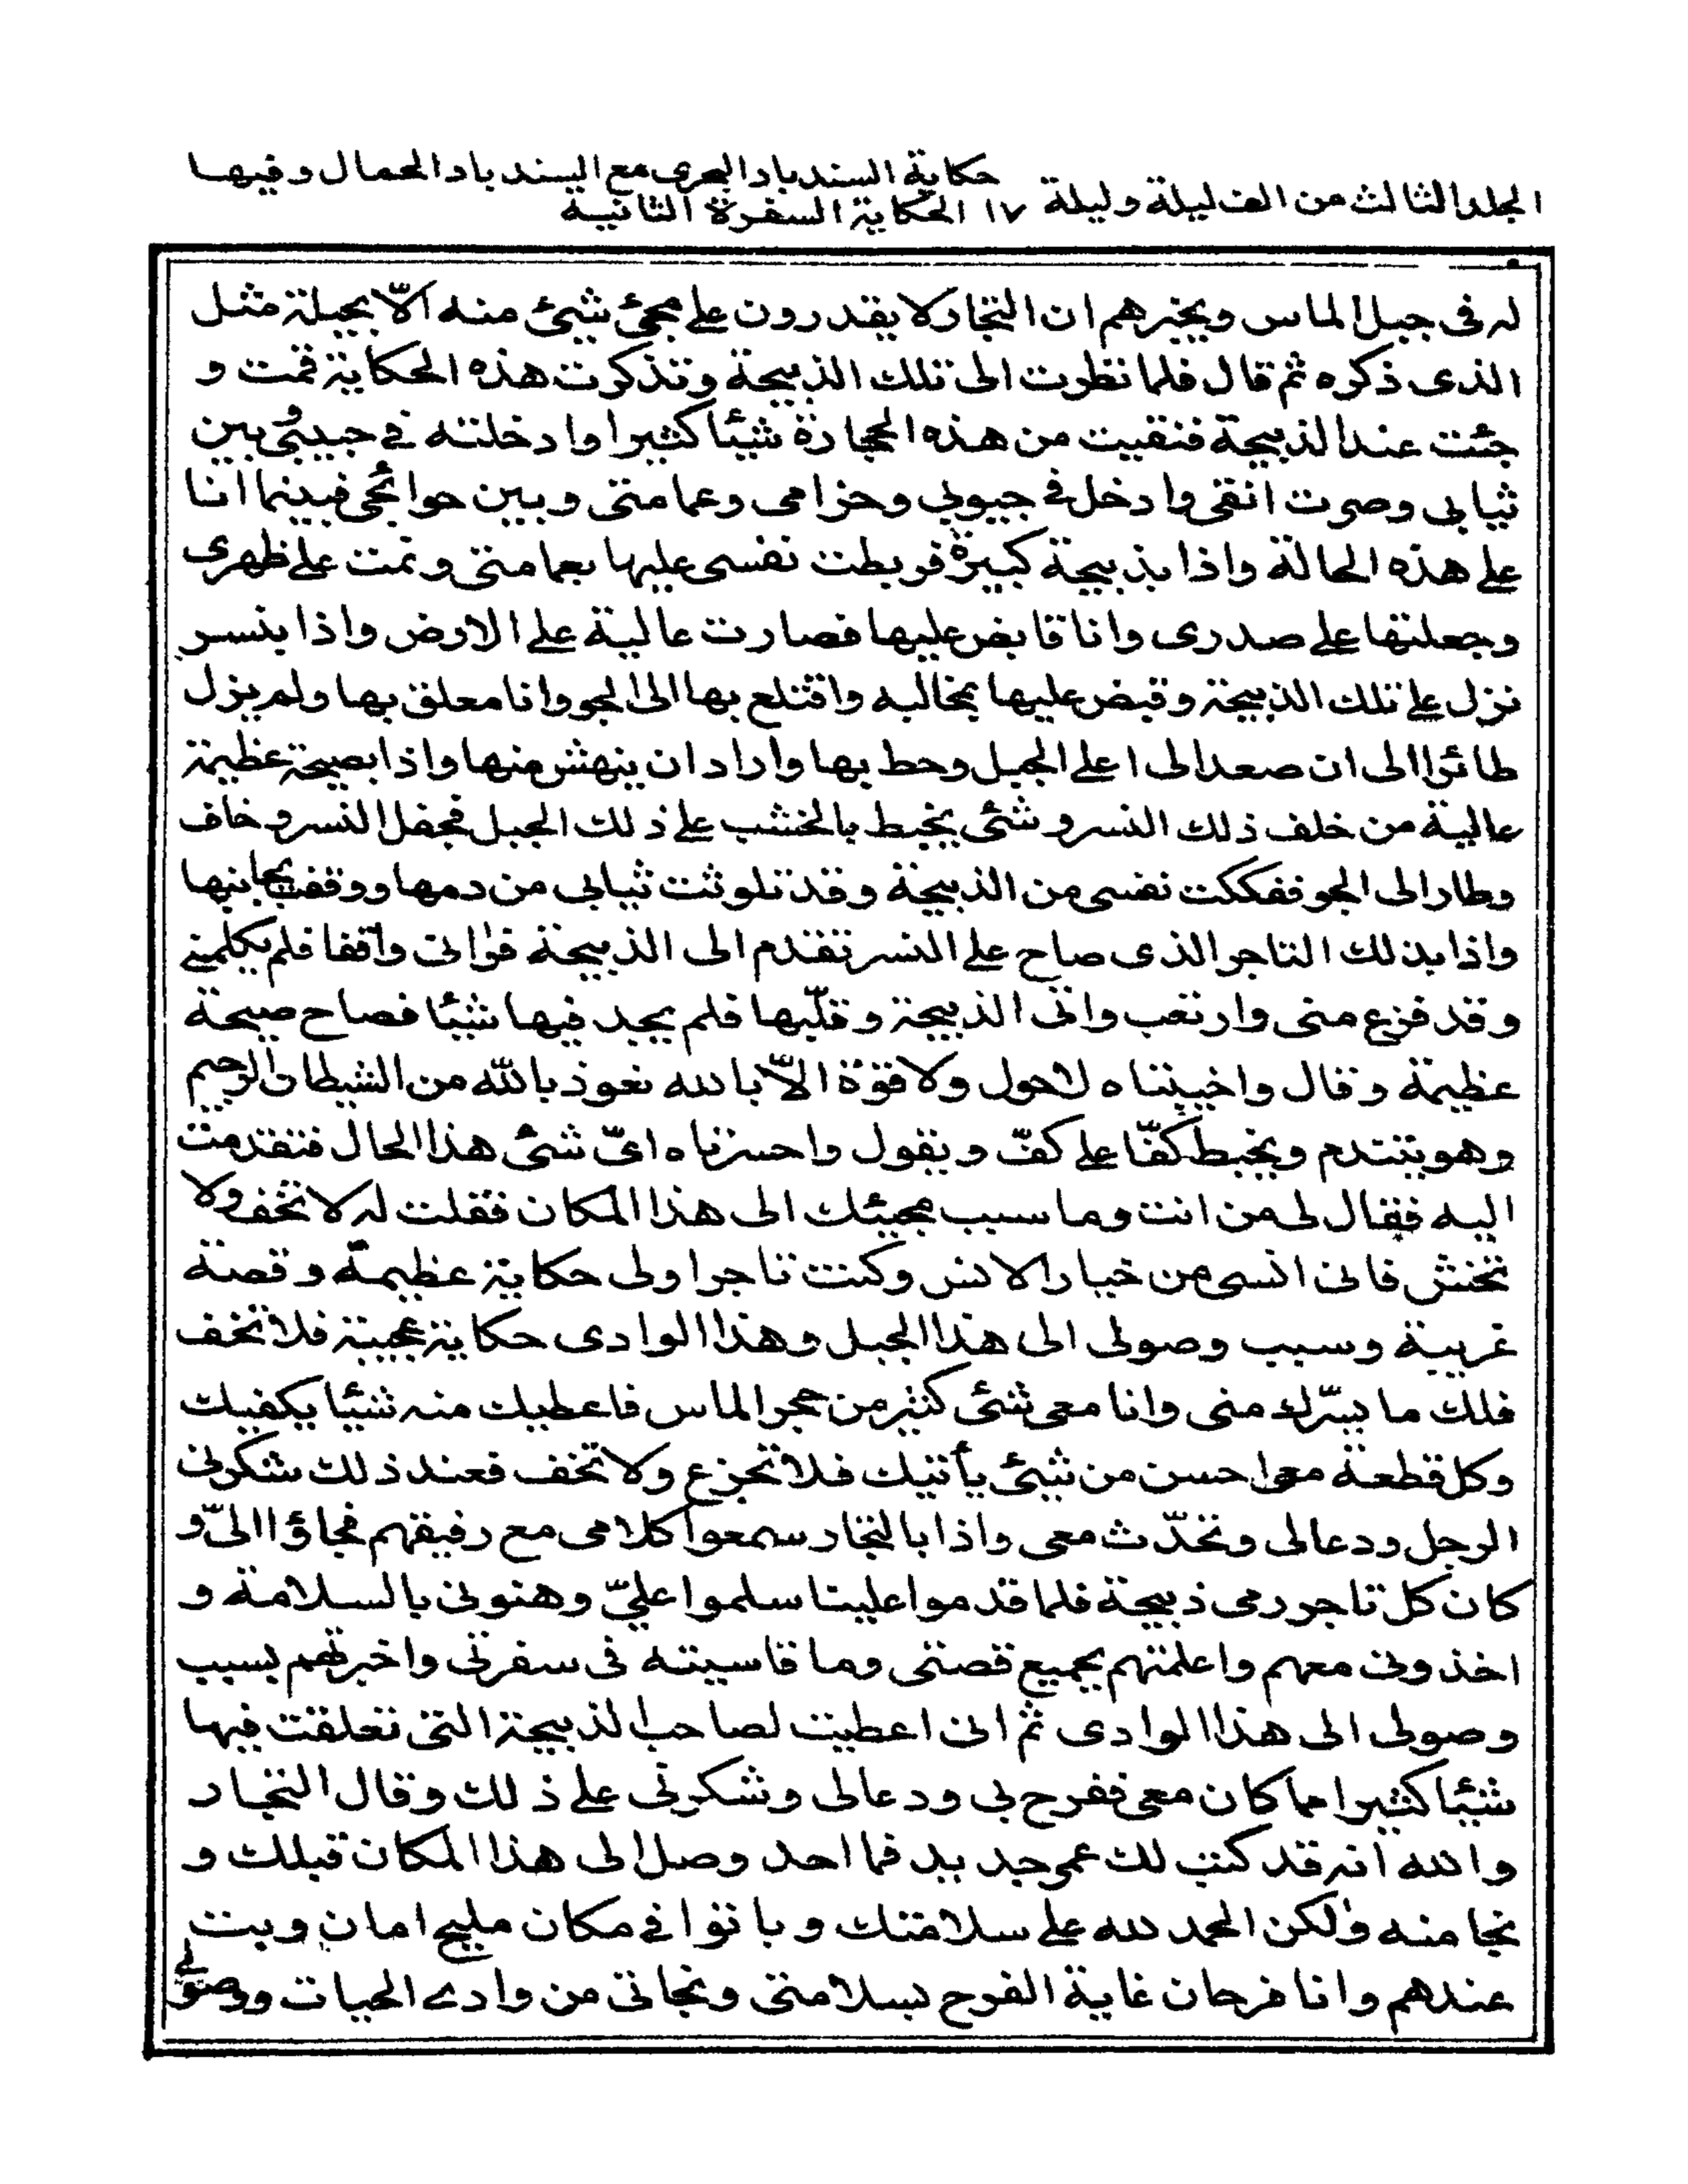 المجلد الثالث من الف ليلة وليلة ١٧ حكاية السندباد البحرى مع السندباد الحمال وفيها
الحكاية السفرة الثانية
له فى جبل الماس ويخبرهم ان التجار لا يقدرون على مجئ شيئ منه الّا بحيلة مثل
الذى ذكره ثم قال فلما نظرت الى تلك الذبيحة وتذكرت هذه الحكاية قمت و
جئت عند الذبيحة فنقيت من هذه الحجارة شيئا كثيرا وادخلته فى جيبى وبين
ثيابى وصرت انقى وادخل فى جيوبي وحزامى وعمامتى وبين حوائجى فبينما انا
على هذه الحالة واذا بذبيحة كبيرة فربطت نفسى عليها بعمامتى ونمت على ظهرى
وجعلتها على صدرى وانا قابض عليها فصارت عالية على الارض واذا بنسر
نزل على تلك الذبيحة وقبض عليها بمخالبه واقتلع بها الى الجو وانا معلق بها ولم يزل
طائرا الى ان صعد الى اعلى الجبل وحط بها واراد ان ينهش منها واذا بصيحة عظيمة
عالية من خلف ذلك النسر وشئى يخبط بالخشب على ذلك الجبل فجفل النسر وخاف
وطار الى الجو ففككت نفسى من الذبيحة وقد تلوثت ثيابى من دمها ووقفت بجانبها
واذا بذلك التاجر الذى صاح على النسر تقدم الى الذبيحة فرانى واقفا فلم يكلمنى
وقد فزع منى وارتعب واتى الذبيحة وقلّبها فلم يجد فيها شيئا فصاح صيحة
عظيمة وقال واخيبتاه لاحول ولا قوّة الّا بالله نعوذ بالله من الشيطان الرجيم
وهو يتندم ويخبط كفّا على كفّ ويقول واحسرتاه اىّ شئى هذا الحال فتقدمت
اليه فقال لى من انت وما سبب مجيئك الى هذا المكان فقلت له لا تخف ولا
تخش فانى انسى من خيار الانس وكنت تاجرا ولى حكاية عظيمة وقصة
غريبة وسبب وصولى الى هذا الجبل وهذا الوادى حكاية عجيبة فلا تخف
فلك ما يسّرك منى وانا معى شئى كثير من حجر الماس فاعطيك منه شيئا يكفيك
وكل قطعة معى احسن من شيئ يأتيك فلا تجزع ولا تخف فعند ذلك شكرنى
الرجل ودعا لى وتحدّث معى واذا بالتجار سمعوا كلامى مع رفيقهم فجاؤا الىّ و
كان كل تاجر رمى ذبيحة فلما قدموا علينا سلموا علىّ وهنونى بالسلامة و
اخذونى معهم واعلمتهم بجميع قصتى وما قاسيته فى سفرتى واخبرتهم بسبب
وصولى الى هذا الوادى ثم انى اعطيت لصاحب الذبيحة التى تعلقت فيها
شيئا كثيرا مما كان معى ففرح بى ودعا لى وشكرنى على ذلك وقال التجار
والله انه قد كتب لك عمر جديد فما احد وصل الى هذا المكان قبلك و
نجا منه ولكن الحمد لله على سلامتك وباتوا فى مكان مليح امان وبت
عندهم وانا فرحان غاية الفرح بسلامتى ونجاتى من وادى الحيات ووصولى